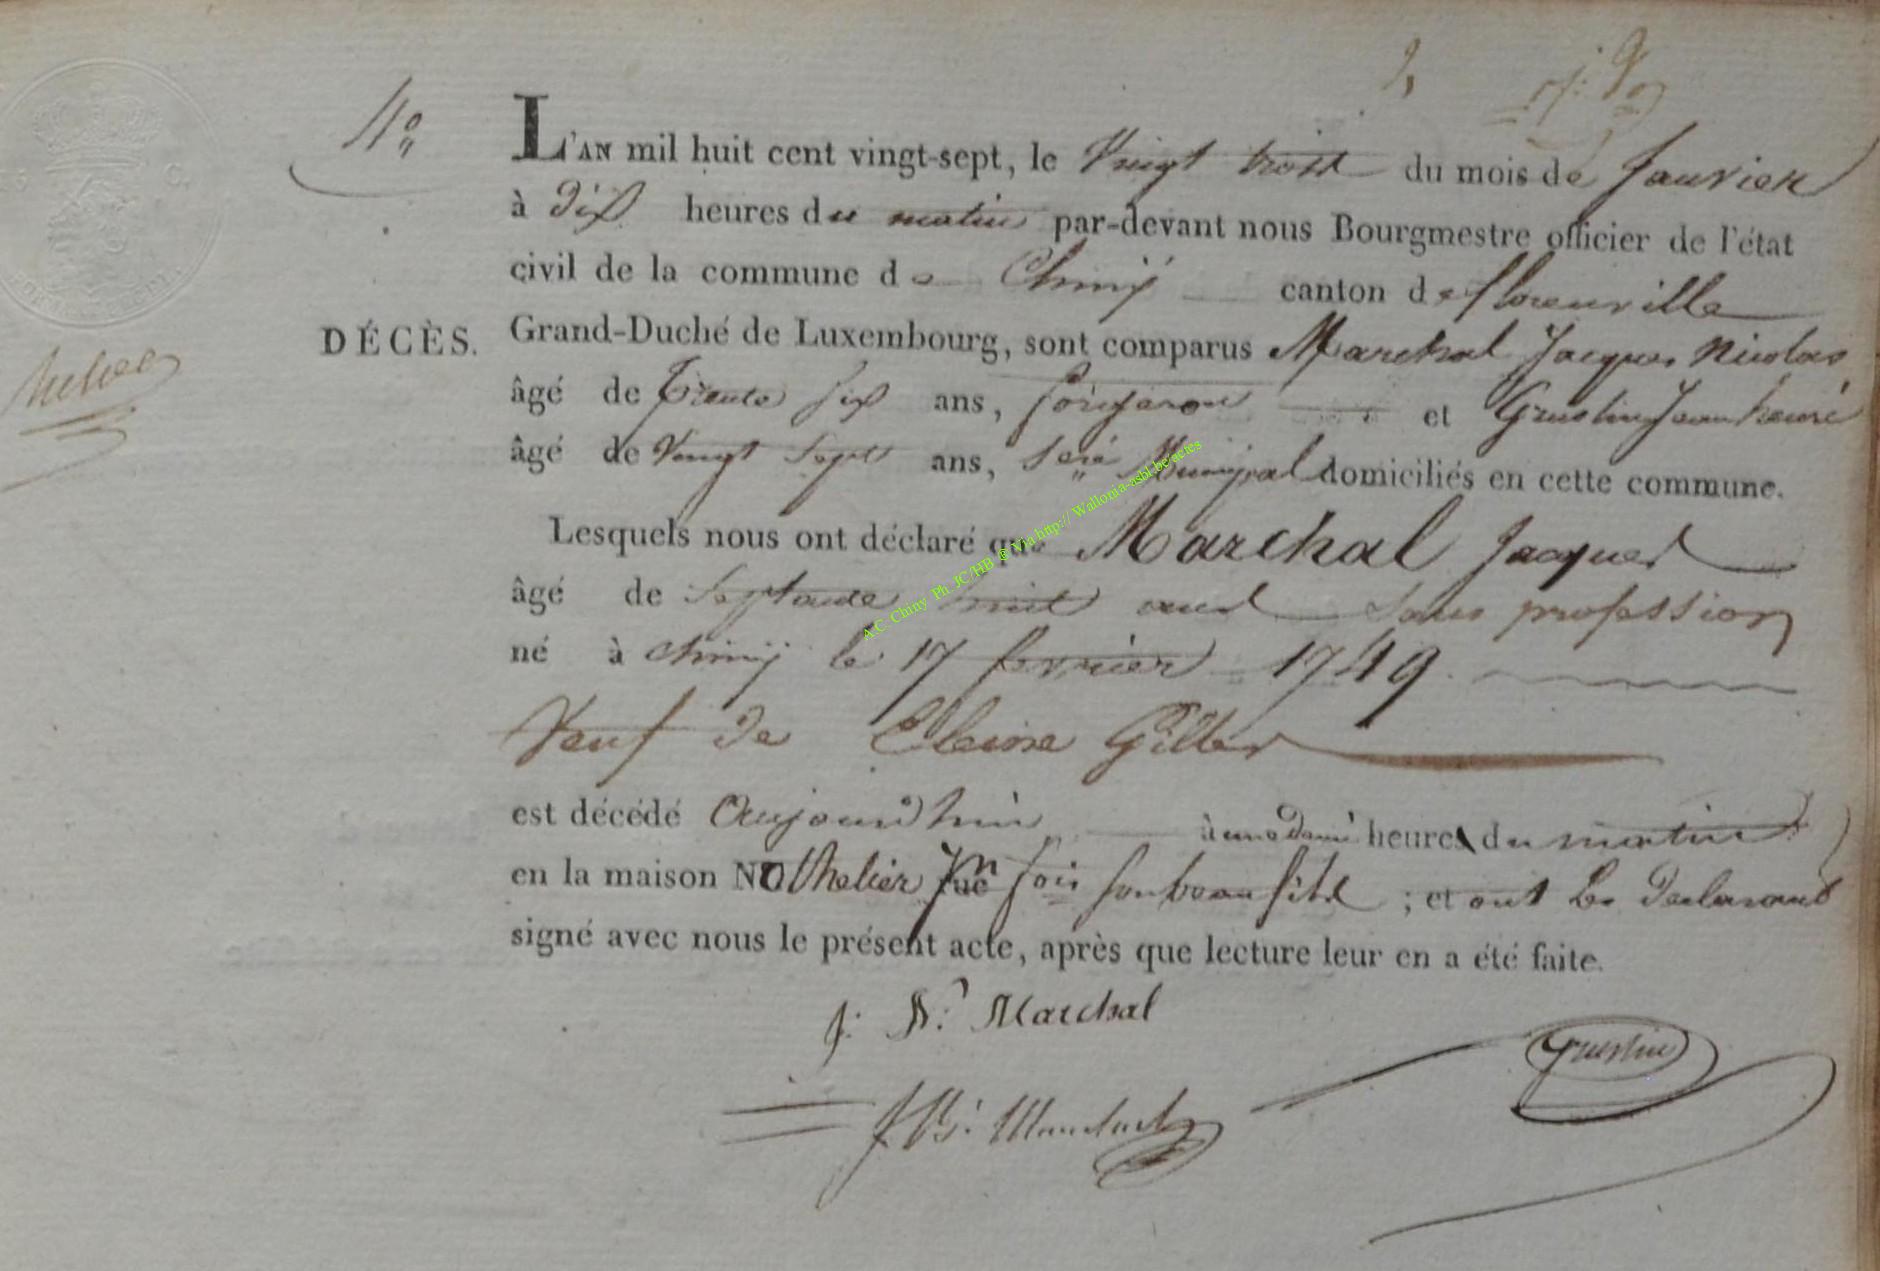 4º
L'AN mil huit cent vingt-sept, le Vingt trois du mois de Janvier
à Dix heures du matin par-devant nous Bourgmestre officier de l'état
civil de la commune de Chiny canton de florenville
DÉCÈS.
Grand-Duché de Luxembourg, sont comparus Marchal Jacques Nicolas
âgé de trente six ans, forgeron et Grustin Jean henré
âgé de Vingt Sept ans, Municipal domiciliés en cette commune.
Lesquels nous ont déclaré que Marchal Jacques
âgé de Septante huit ans Sans profession
né à chiny le 17 fevrier 1749
Veuf de Gillet
est décédé Aujourd'hui à une Demi heure du matin
en la maison Nothelier son beau fils ; et ont les Declarants
signé avec nous le présent acte, après que lecture leur en a été faite.
J: N: Marchal
Grustin
A.C. Chiny Ph. JC/HB @ Via http:// Wallonia-asbl.be/actes